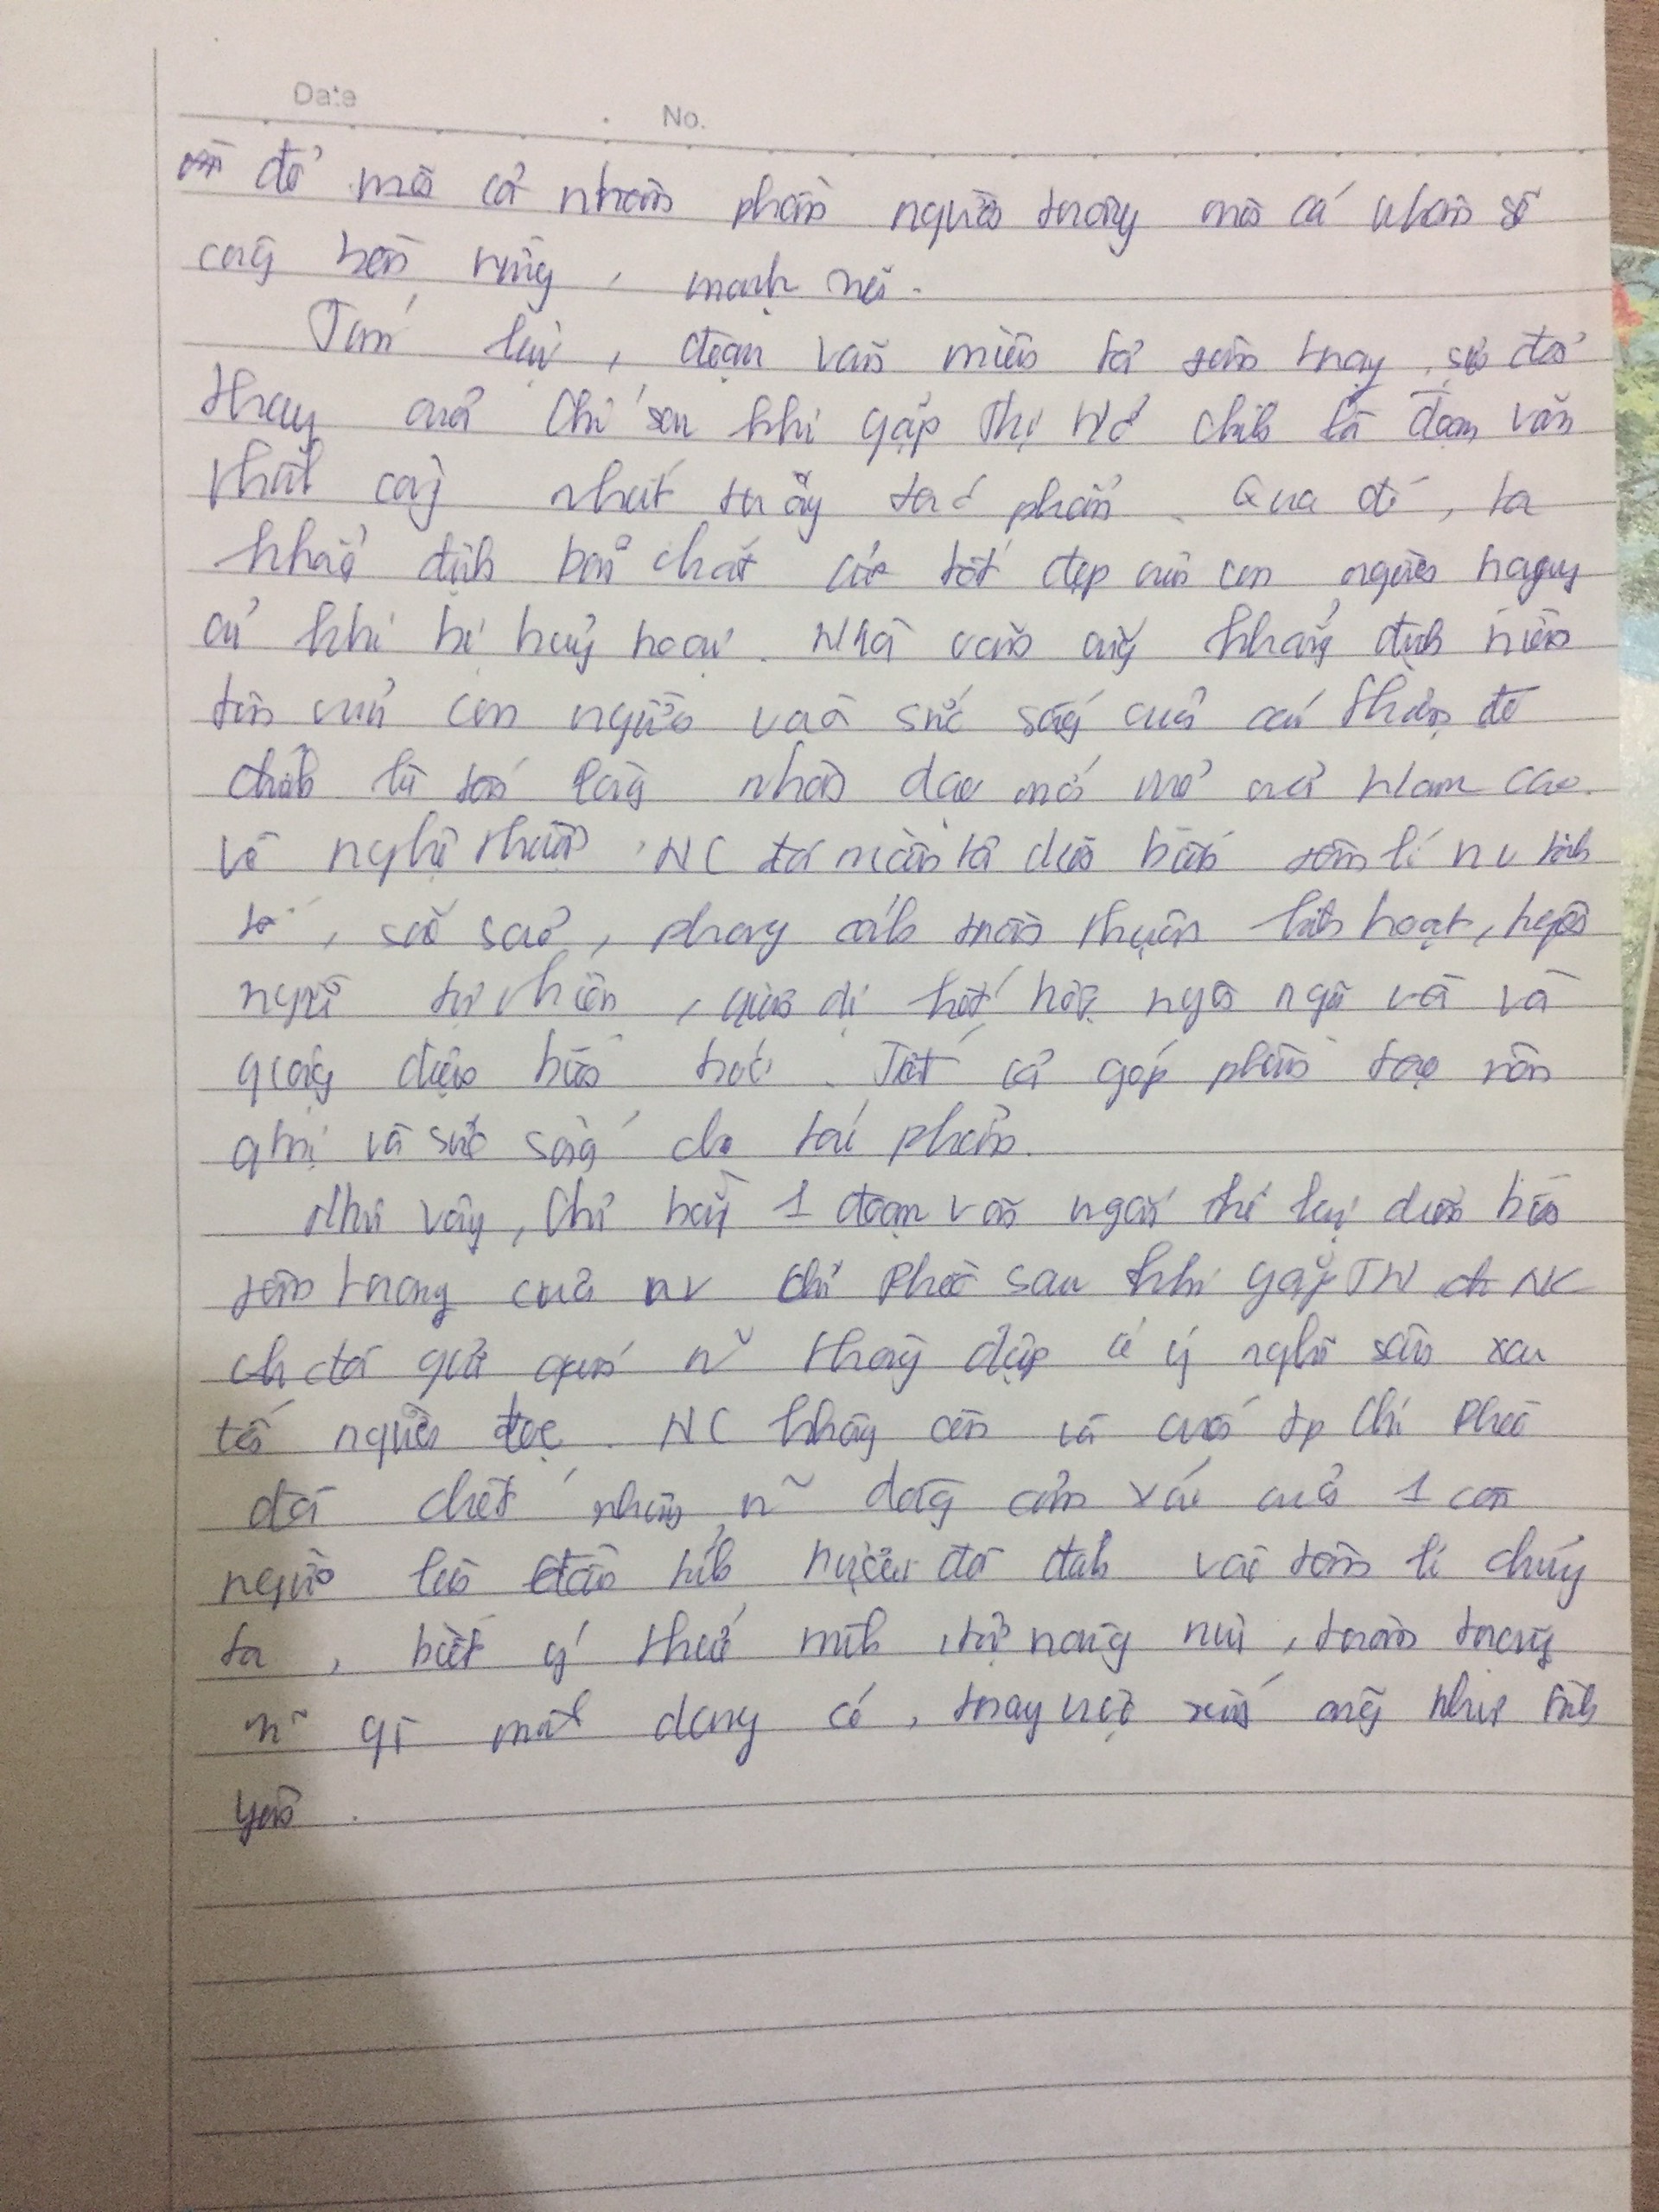 Date No.
đổ mà cả nhân phẩm người trong mỗi cá nhân sẽ
càng bền vững, mạnh mẽ.
Tóm lại, đoạn văn miêu tả tâm trạng, sự đổi
thay của Chí sau khi gặp Thị Nở chính là đoạn văn
thành công nhất trong tác phẩm. Qua đó, ta
khẳng định bản chất tốt đẹp của con người ngay
cả khi bị huỷ hoại. Nhà văn cũng khẳng định niềm
tin của con người và sức sống của cái thiện đó
chính là tấm lòng nhân đạo mới mẻ của Nam Cao.
Về nghệ thuật, NC đã miêu tả diễn biến tâm lí nv tinh
tế, sắc sảo, phong cách trần thuật linh hoạt, ngôn
ngữ tự nhiên, giản dị kết hợp ngôn ngữ và và
giọng điệu biến hoá. Tất cả góp phần tạo nên
giá trị và sức sống cho tác phẩm.
Như vậy, chỉ bằng 1 đoạn văn ngắn thể lại diễn biến
tâm trạng của nv Chí Phèo sau khi gặp TN NC
đã gửi gắm n~ thông điệp có ý nghĩa sâu xa
tới người đọc. NC không còn và cuối tp Chí Phèo
đã chết nhưng n~ dòng cảm xúc của 1 con
người lần đầu tỉnh rượu đã đánh vào tâm lí chúng
ta, biết ý thức mình, tự nâng niu, trân trọng
n~ gì mình đang có, may mắn xứng đáng như tình
yêu.